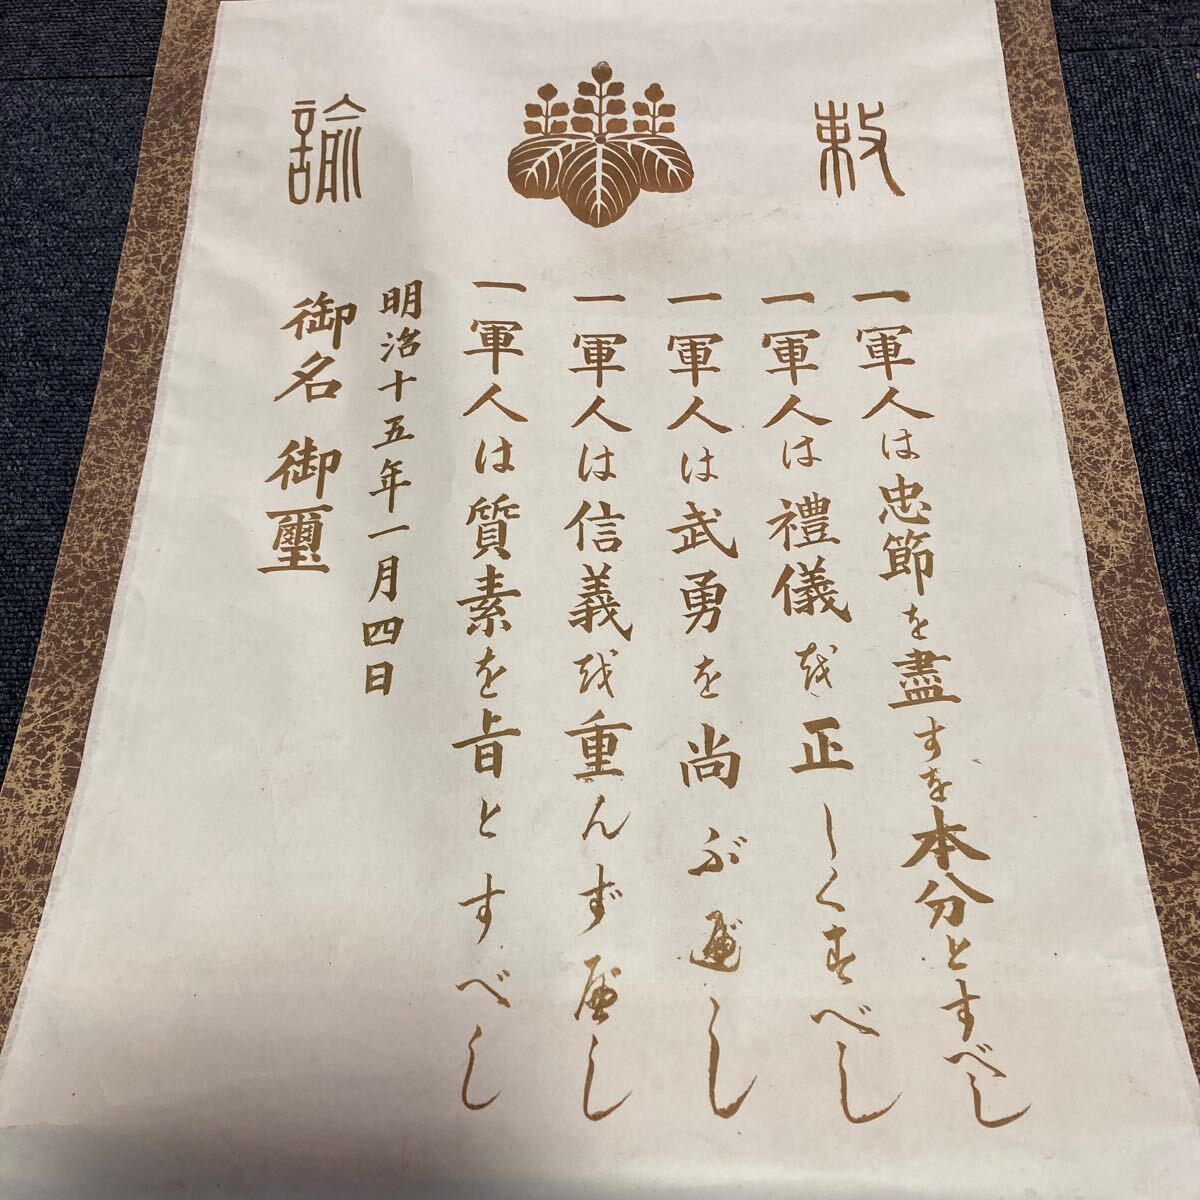 敕諭
一軍人は忠節を盡すを本分とすべし
一軍人は禮儀を正しくすべし
一軍人は武勇を尚ぶべし
一軍人は信義を重んずべし
一軍人は質素を旨とすべし
明治十五年一月四日
御名御璽